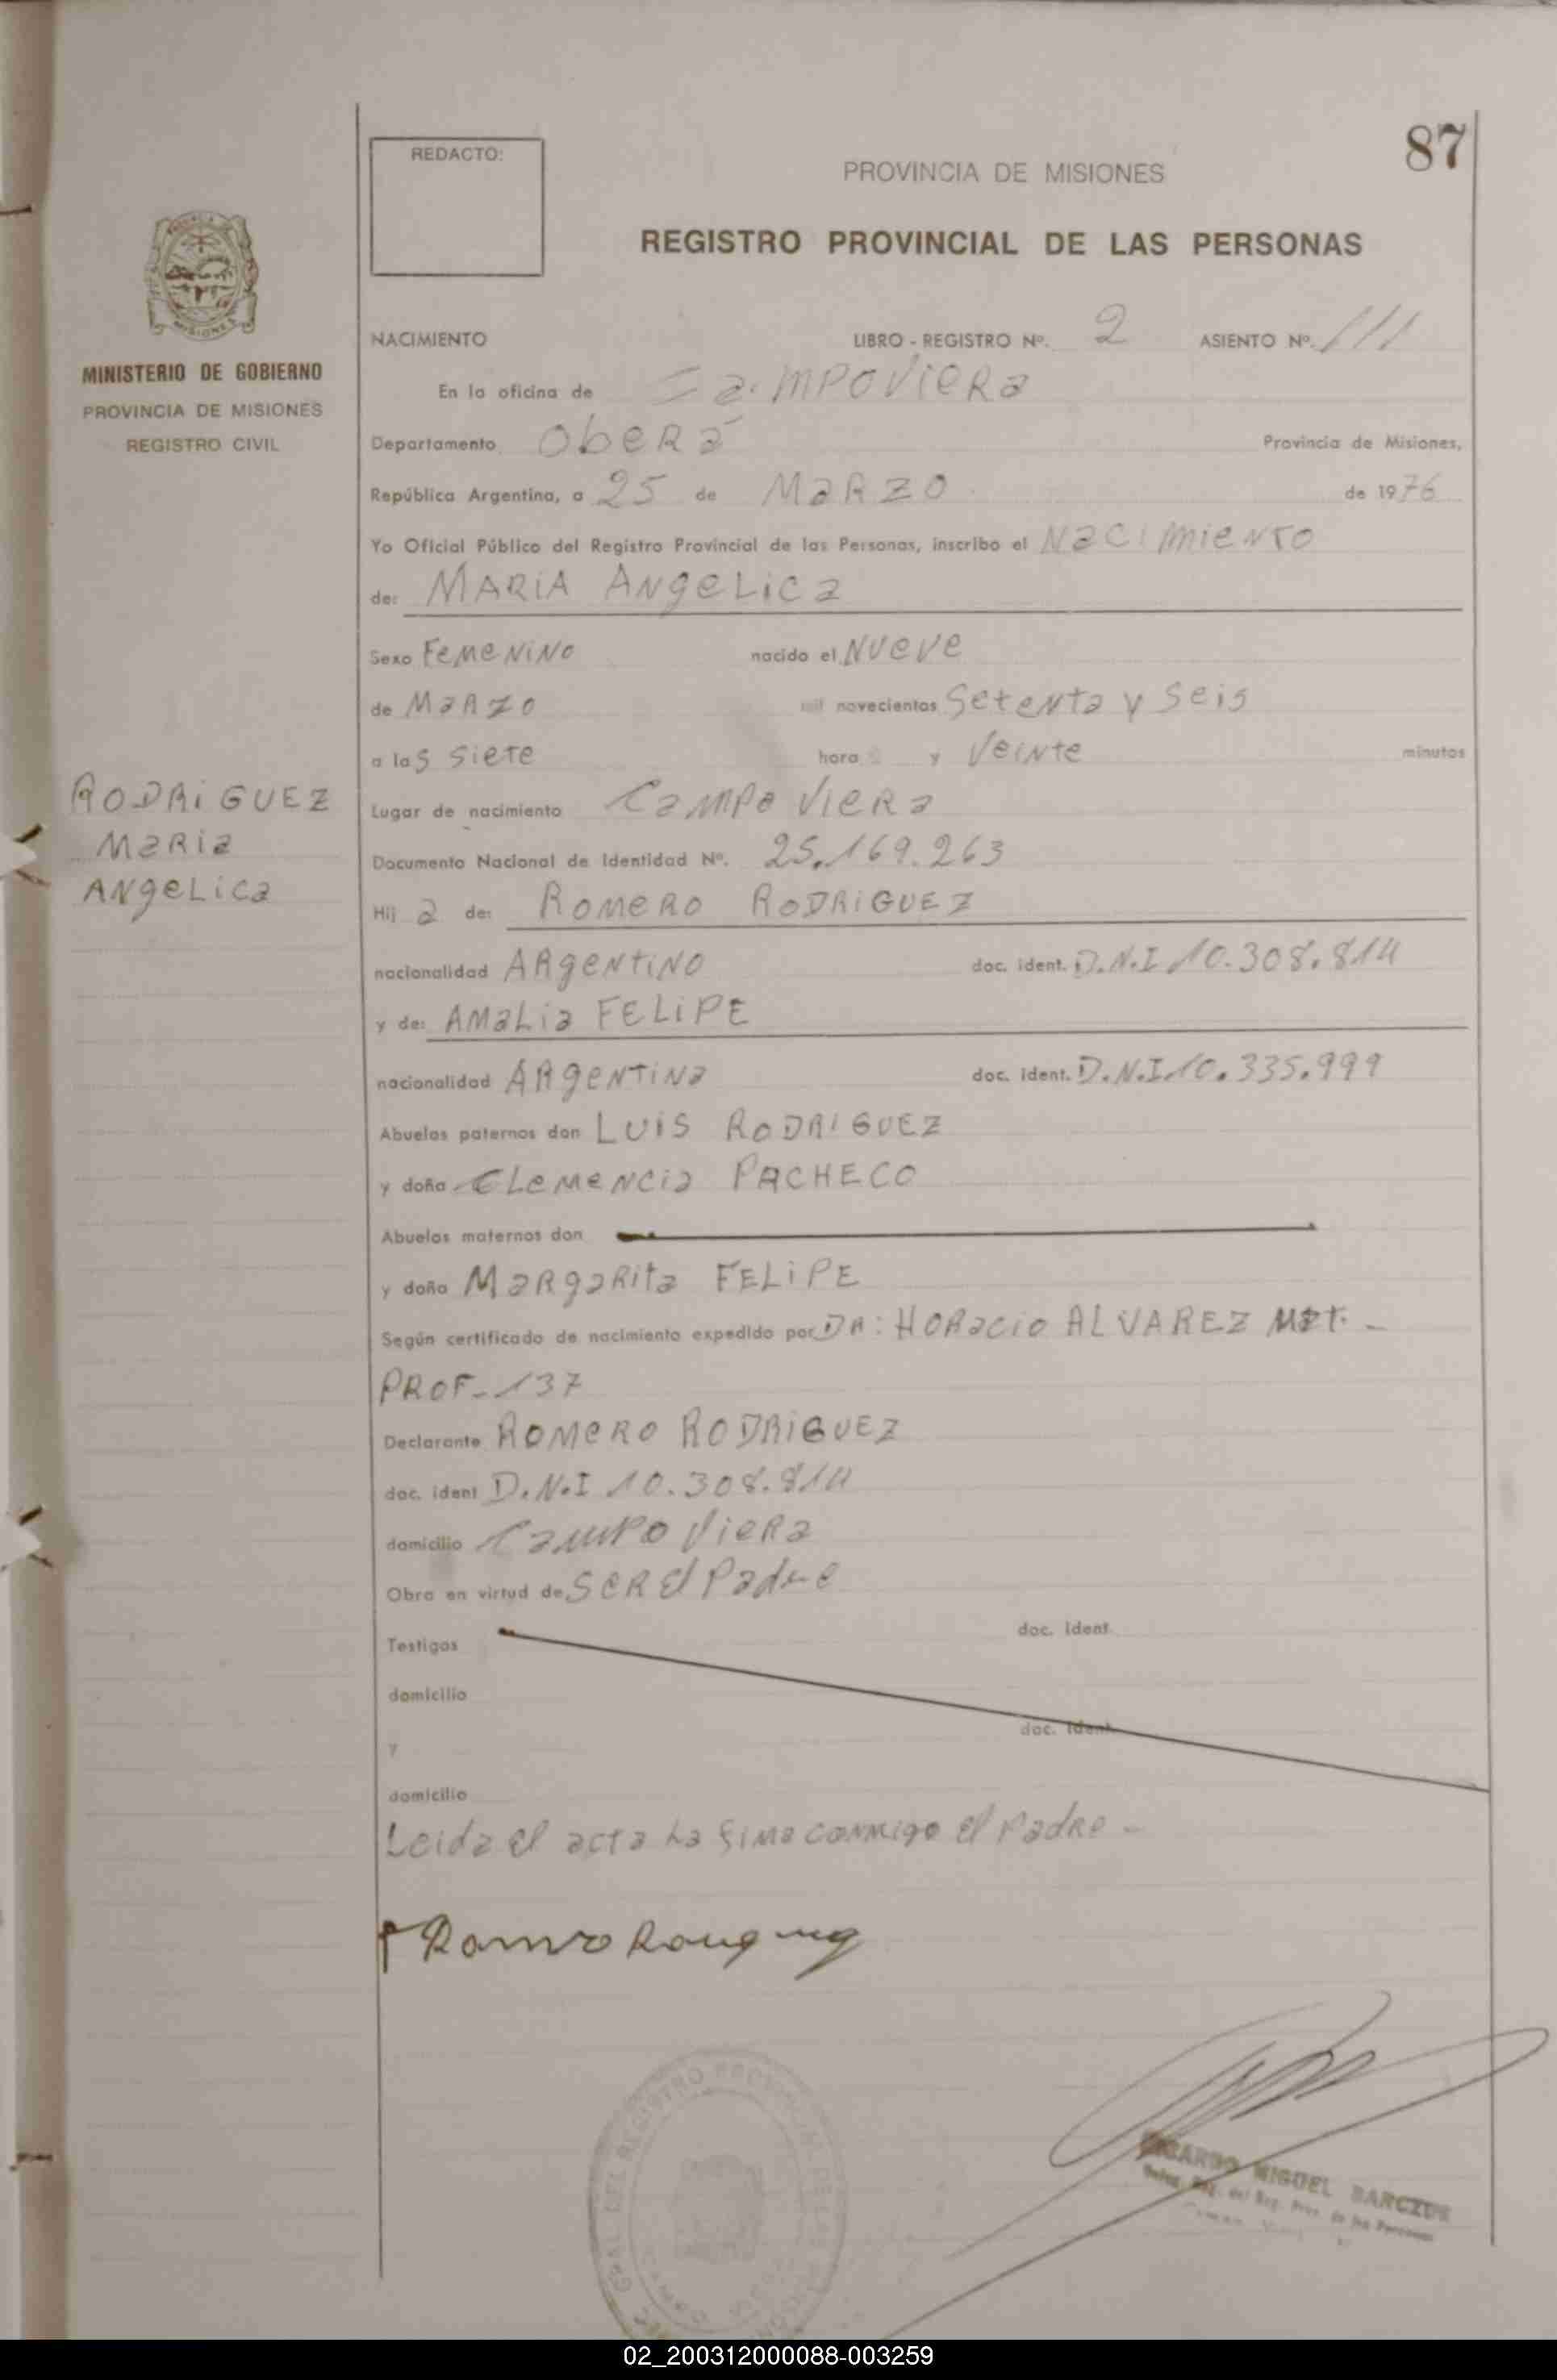 87
REDACTO:
PROVINCIA DE MISIONES
REGISTRO PROVINCIAL DE LAS PERSONAS
MISIONES
MINISTERIO DE GOBIERNO
PROVINCIA DE MISIONES
REGISTRO CIVIL
RODRIGUEZ
MARIA
ANGELICA
NACIMIENTO LIBRO - REGISTRO Nº. 2 ASIENTO Nº. 111
En la oficina de CAMPOVIERA
Departamento OBERÁ Provincia de Misiones,
República Argentina, a 25 de MARZO de 1976
Yo Oficial Público del Registro Provincial de las Personas, inscribo el NACIMIENTO
de: MARIA ANGELICA
Sexo FEMENINO nacido el NUEVE
de MARZO mil novecientos Setenta y Seis
a las SIETE hora y VEINTE minutos
Lugar de nacimiento CAMPO VIERA
Documento Nacional de Identidad Nº. 25.169.263
Hij a de: ROMERO RODRIGUEZ
nacionalidad ARGENTINO doc. ident. D.N.I 10.308.814
y de: AMALIA FELIPE
nacionalidad ARGENTINA doc. ident. D.N.I 10.335.999
Abuelos paternos don LUIS RODRIGUEZ
y doña CLEMENCIA PACHECO
Abuelos maternos don
y doña MARGARITA FELIPE
Según certificado de nacimiento expedido por DR: HORACIO ALVAREZ MAT. -
PROF- 137
Declarante ROMERO RODRIGUEZ
doc. ident D.N.I 10.308.814
domicilio CAMPO VIERA
Obra en virtud de SER El Padre
Testigos doc. ident
domicilio
doc. ident
y
domicilio
Leida el acta La Fima conmigo el Padre -
MIGUEL
02_200312000088-003259